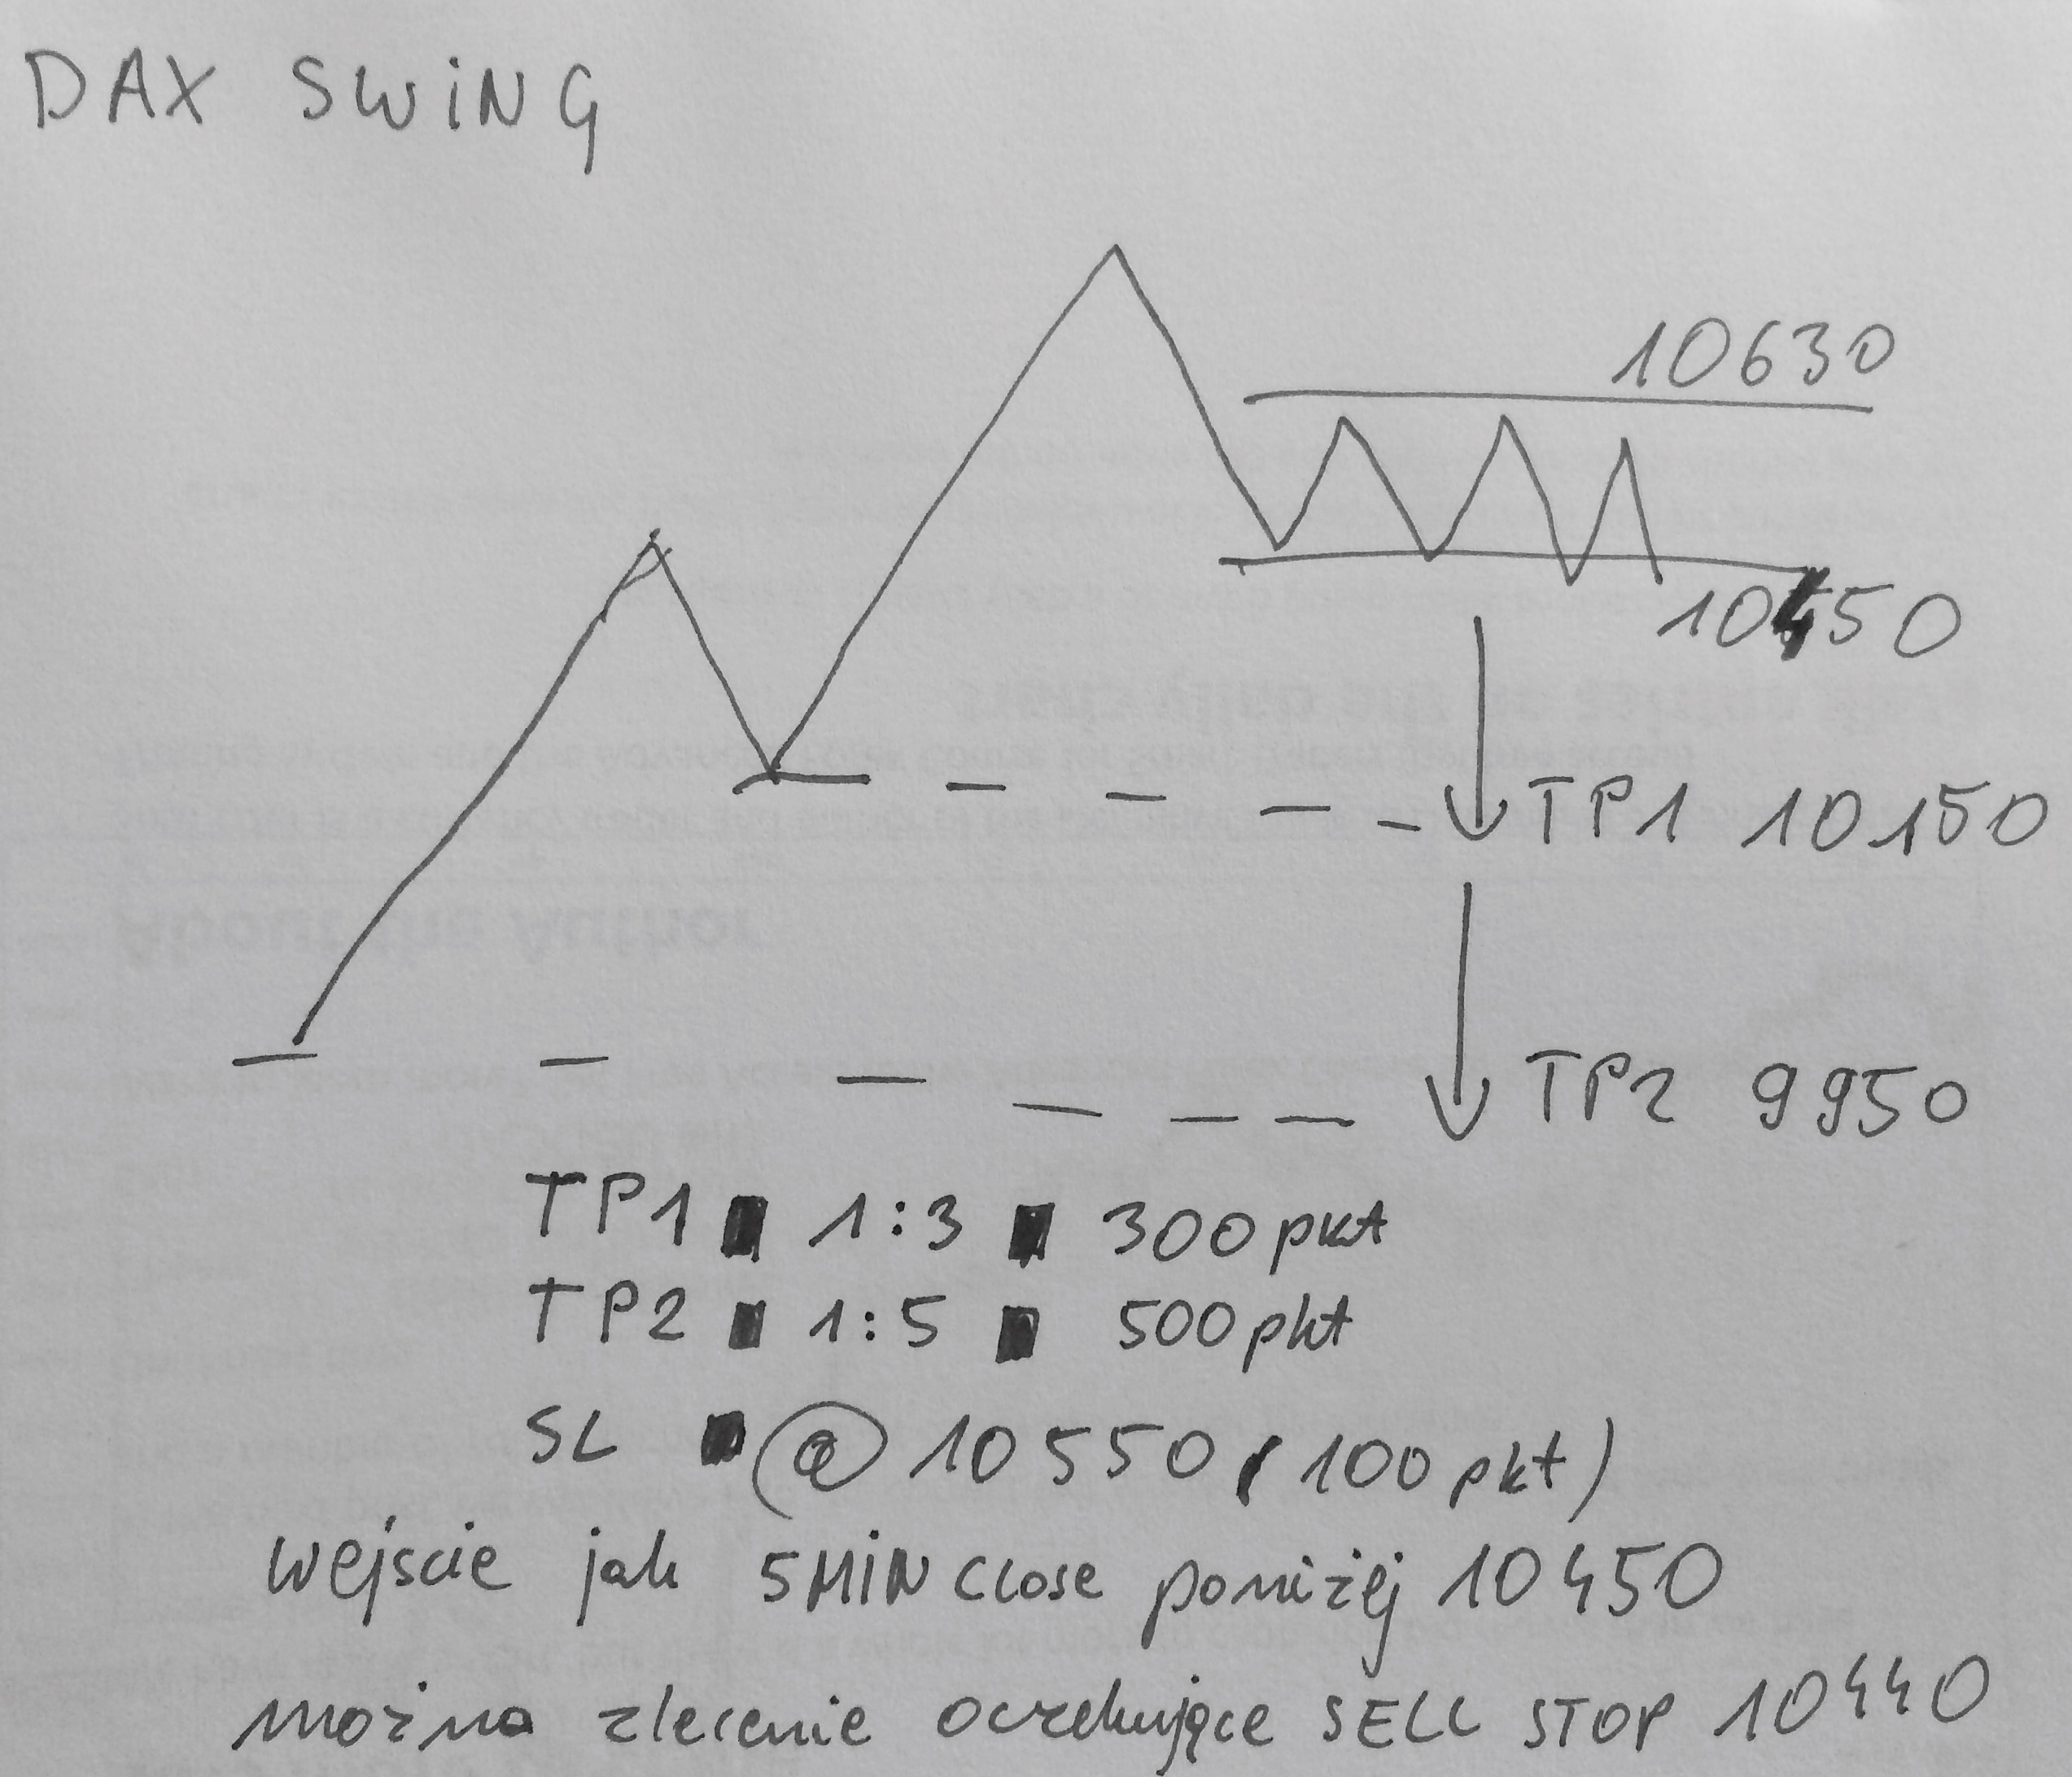 DAX SWiNG
10630
10450
TP1 10150
TP2 9950
TP1 1:3 300pkt
TP2 1:5 500pkt
SL @ 10550 (100 pkt)
wejście jak 5MiN close poniżej 10450
można zlecenie oczekujące SELL STOP 10440